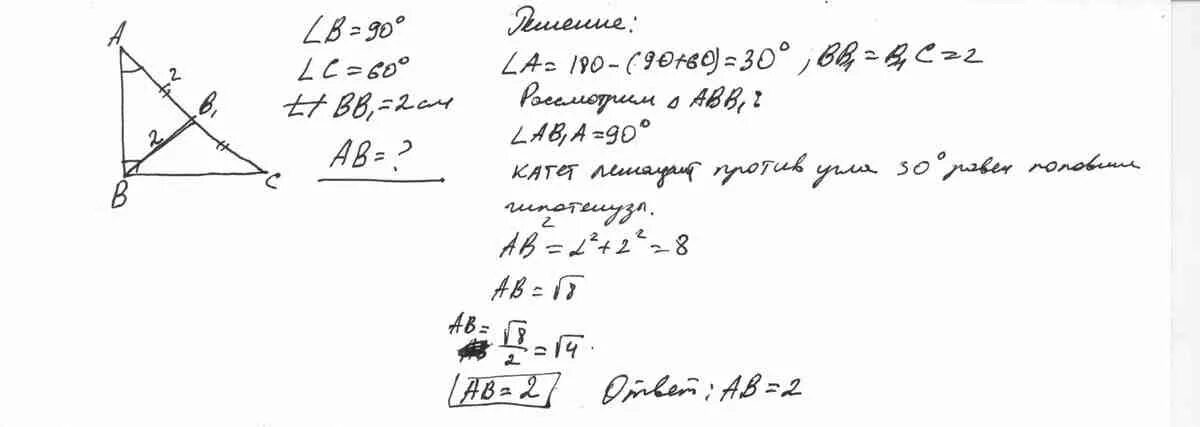 A
2
B₁
2
B
C
∠B = 90°
∠C = 60°
BB₁ = 2 см
AB = ?
Решение:
∠A = 180 - (90+60) = 30°, BB₁ = B₁C = 2
Рассмотрим Δ ABB₁:
∠AB₁A = 90°
КАТЕТ лежащий против угла 30° равен половине
гипотенузы.
AB² = 2² + 2² = 8
AB = √8
AB = √8/2 = √4.
AB = 2
Ответ: AB = 2